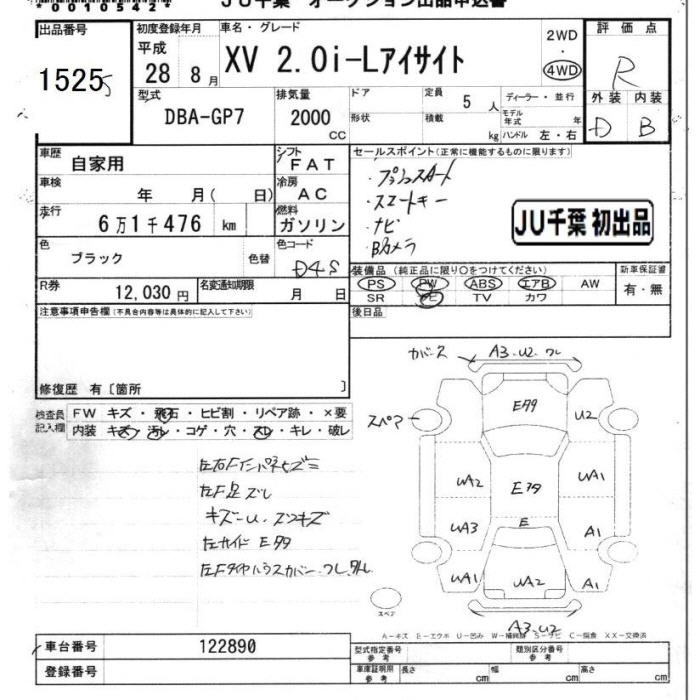 00105427
JU千葉 オークション出品申込書
出品番号 初度登録年月 車名・グレード 2WD 評価点
1525 平成 28 年 8 月 XV 2.0i-Lアイサイト ・ 4WD R
型式 排気量 ドア 定員 5 人 ディーラー・並行 外装 内装
DBA-GP7 2000 cc 形状 積載 kg モデル年式 年 ハンドル 左・右 D B
車歴 自家用 シフト FAT セールスポイント(正常に機能するものに限ります)
車検 年 月( 日) 冷房 AC ・プッシュスタート
・スマートキー
走行 6万1千476 km 燃料 ガソリン ・ナビ
・Bカメラ
JU千葉 初出品
色 ブラック 色替 色コード D4S
装備品(純正品に限り○をつけてください) 新車保証書
R券 12,030円 名変通知期限 月 日 PS PW ABS エアB AW 有・無
SR ナビ TV カワ
注意事項申告欄(不具合内容等は具体的に記入して下さい) 後日品
修復歴 有〔箇所 〕
カバース A3.U2 ワレ
検査員記入欄 FW キズ・飛石・ヒビ割・リペア跡・×要
内装 キズ・汚レ・コゲ・穴・スレ・キレ・破レ
スペア E79 U2
左右Fインパネセズミ
左F足ズレ
キズーU.スンキズ
左サイド E79
左Fタイヤハウスカバー.ワレ.外レ
UA2 E79 UA1
UA3 E A1
UA1 UA2 A1
スペア
A3.U2
A-キズ E-エクボ U-凹み W-補修跡 S-サビ C-腐食 XX-交換済
車台番号 122890 型式指定番号 参考 類別区分番号 参考
登録番号 車庫証明用 参考 長さ cm 幅 cm 高さ cm